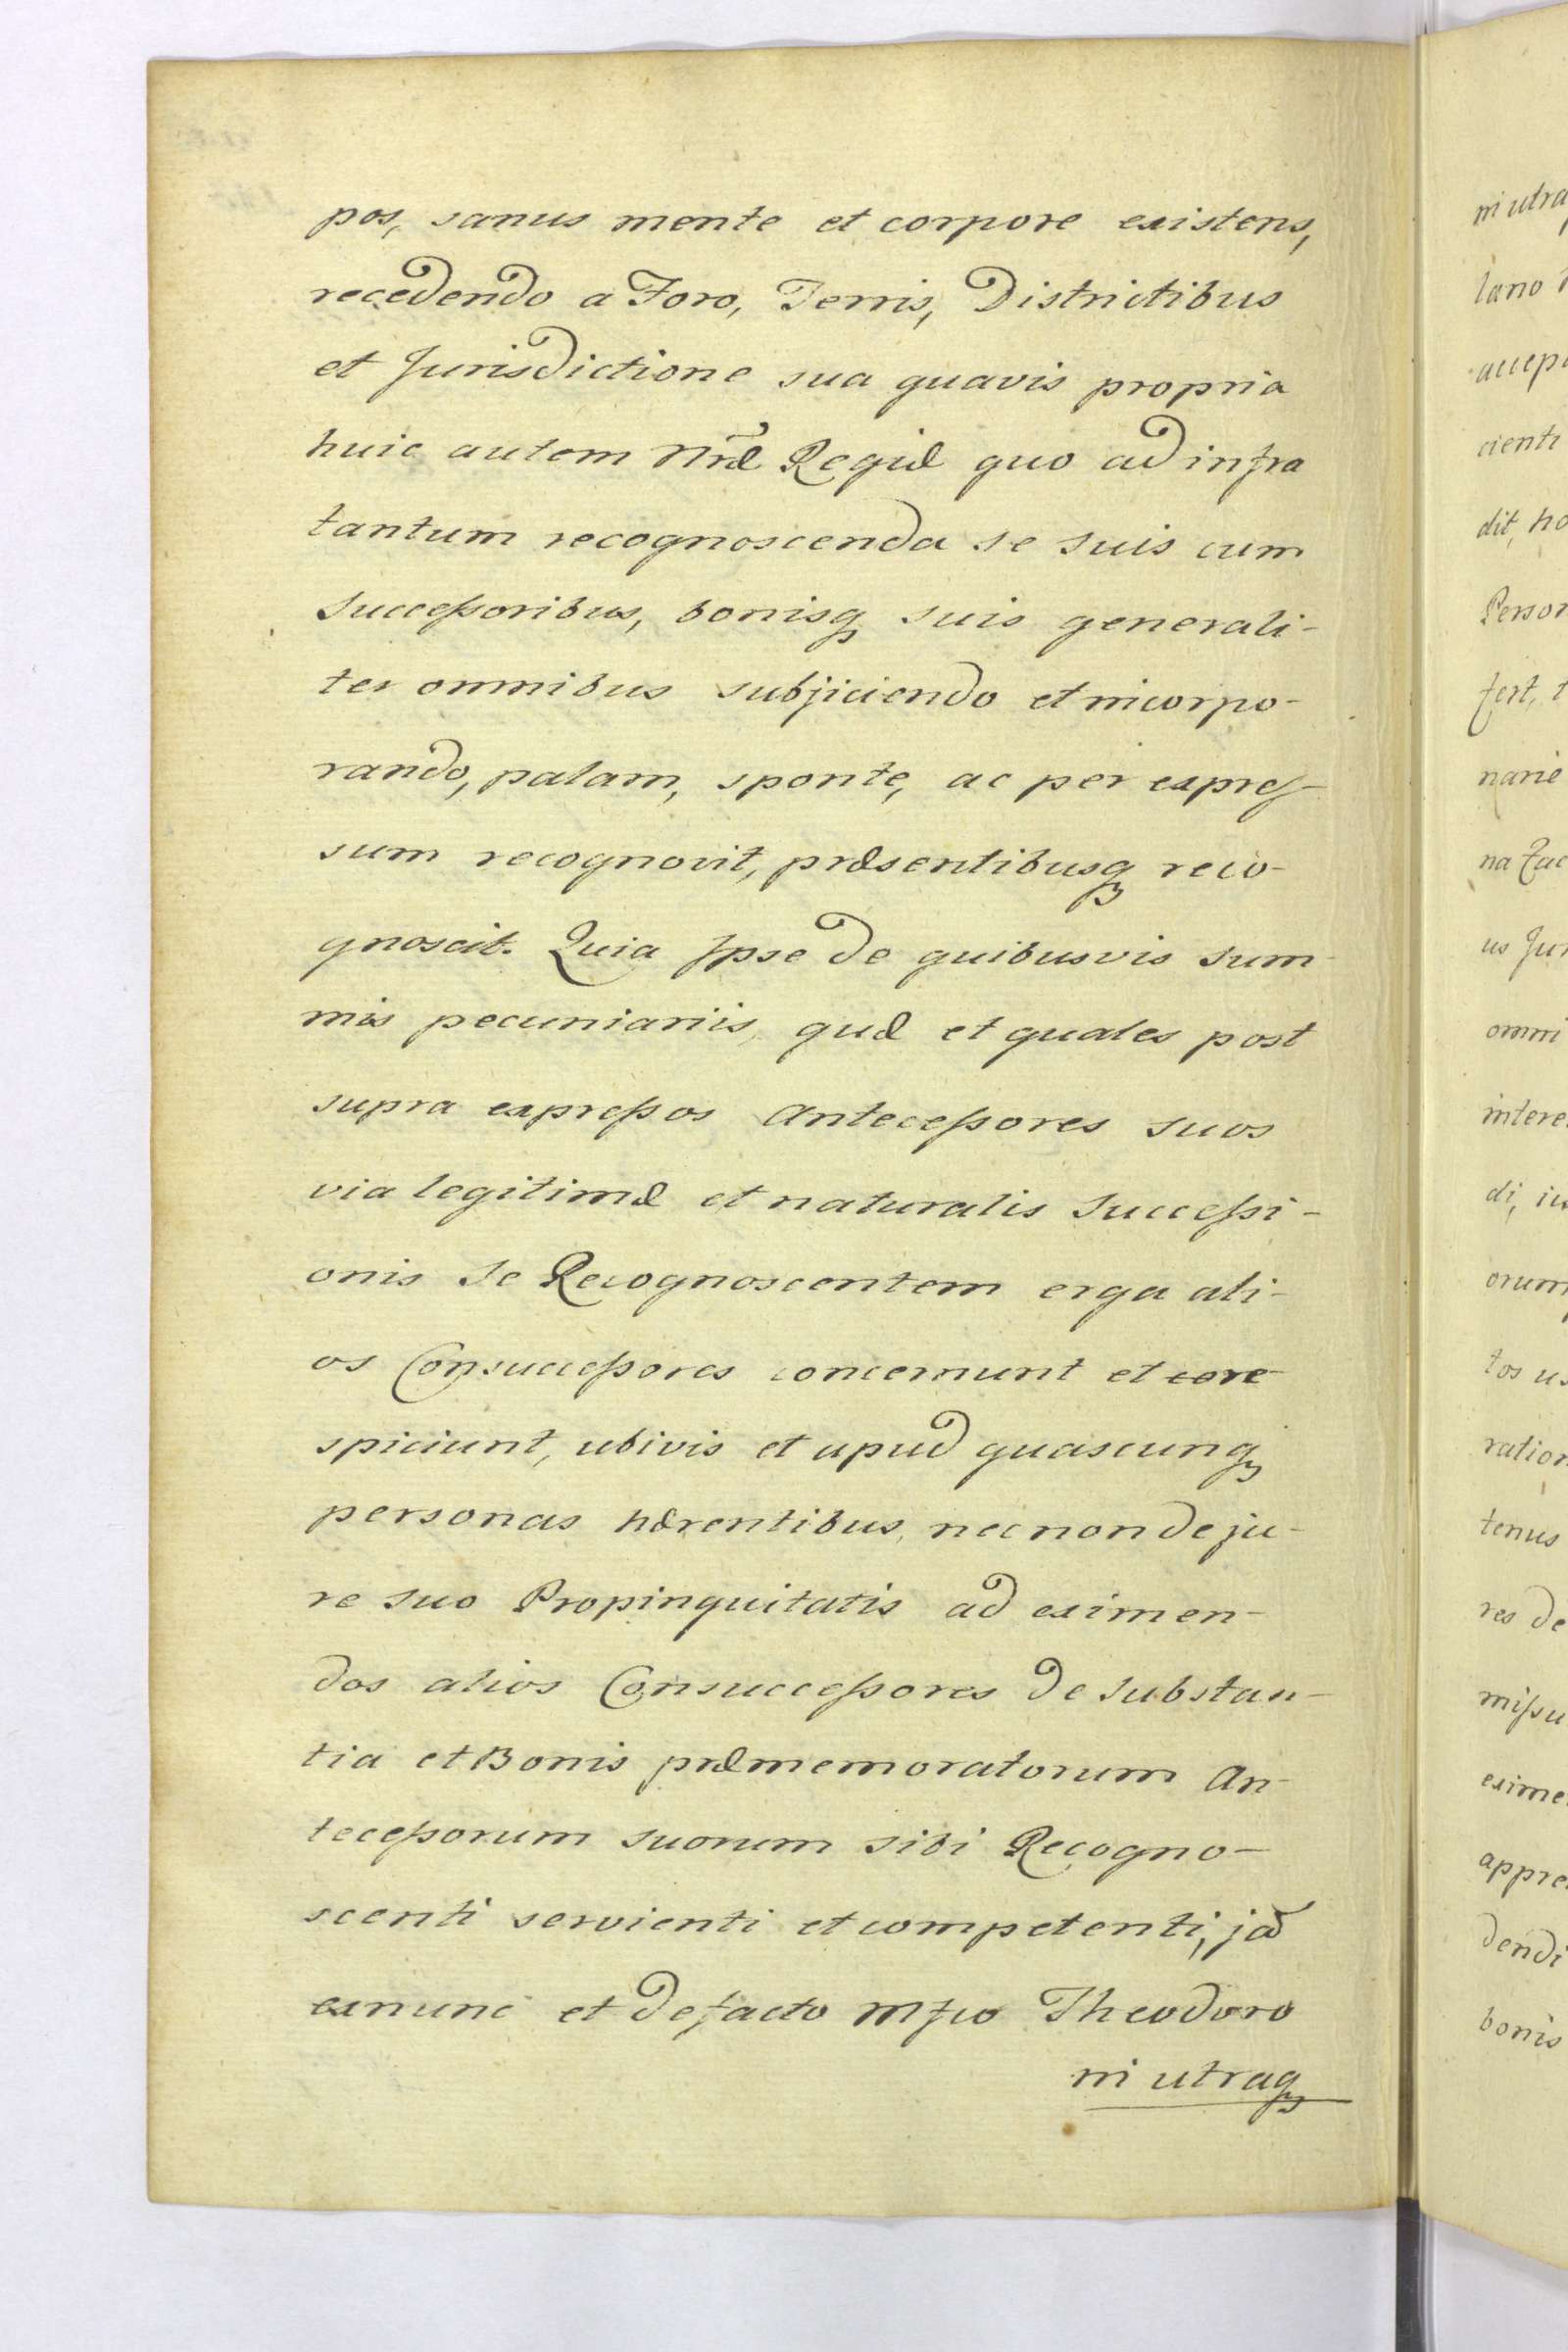 pos, sanus mente et corpore existens,
recedendo a Foro, Terris, Districtibus
et Jurisdictione sua quavis propria
huic autem Nræ Regiæ quo ad infra
tantum recognoscenda se suis cum
Successoribus, bonisq suis generali-
ter omnibus subjiciendo et incorpo-
rando, palam, sponte, ac per expres-
sum recognovit, præsentibusq reco-
gnoscit. Quia Ipse de quibusvis sum-
mis pecuniariis, quæ et quales post
supra expressos Antecessores suos
via legitimæ et naturalis Successi-
onis se Recognoscentem erga ali-
os Consuccessores concernunt et core-
spiciunt, ubivis et apud quascunq
personas hærentibus, nec non de ju-
re suo Propinquitatis ad eximen-
dos alios Consuccessores de Substan-
tia et Bonis præmemoratorum An-
tecessorum suorum sibi Recogno-
scenti servienti et competenti, jã
exnunc et de facto Mfco Theodoro
in utraq
in utra
lano
accep
cienti
dit, ho
Person
fert, t
narie
na
us Jur
omni
intere
di, iu
orum
tos us
ration
tenus
res de
missu
exime
appre
dendi
bonis